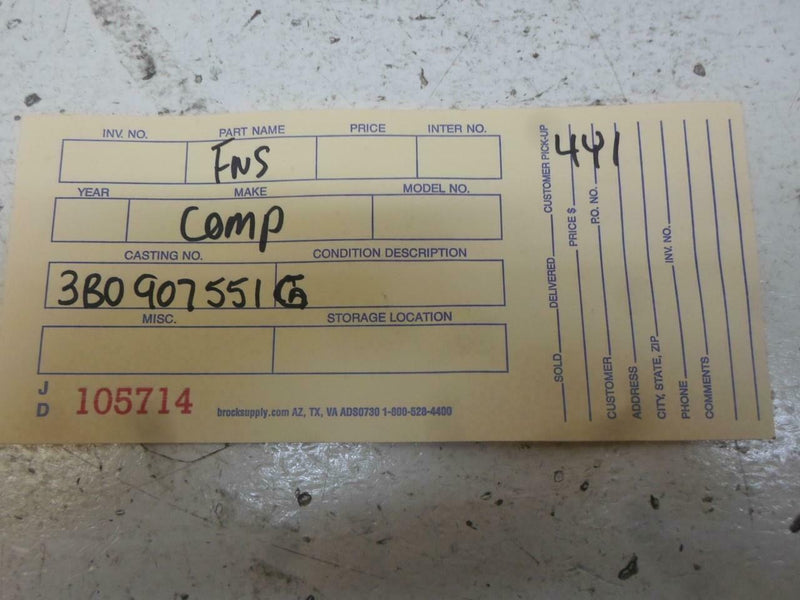 INV. NO. PART NAME PRICE INTER NO.
FNS
YEAR MAKE MODEL NO.
Comp
CASTING NO. CONDITION DESCRIPTION
3B0907551G
MISC. STORAGE LOCATION
J D 105714 brocksupply.com AZ, TX, VA ADS0730 1-800-528-4400
SOLD DELIVERED CUSTOMER PICK-UP
441
PRICE $
P.O. NO.
CUSTOMER
ADDRESS
CITY, STATE, ZIP INV. NO.
PHONE
COMMENTS